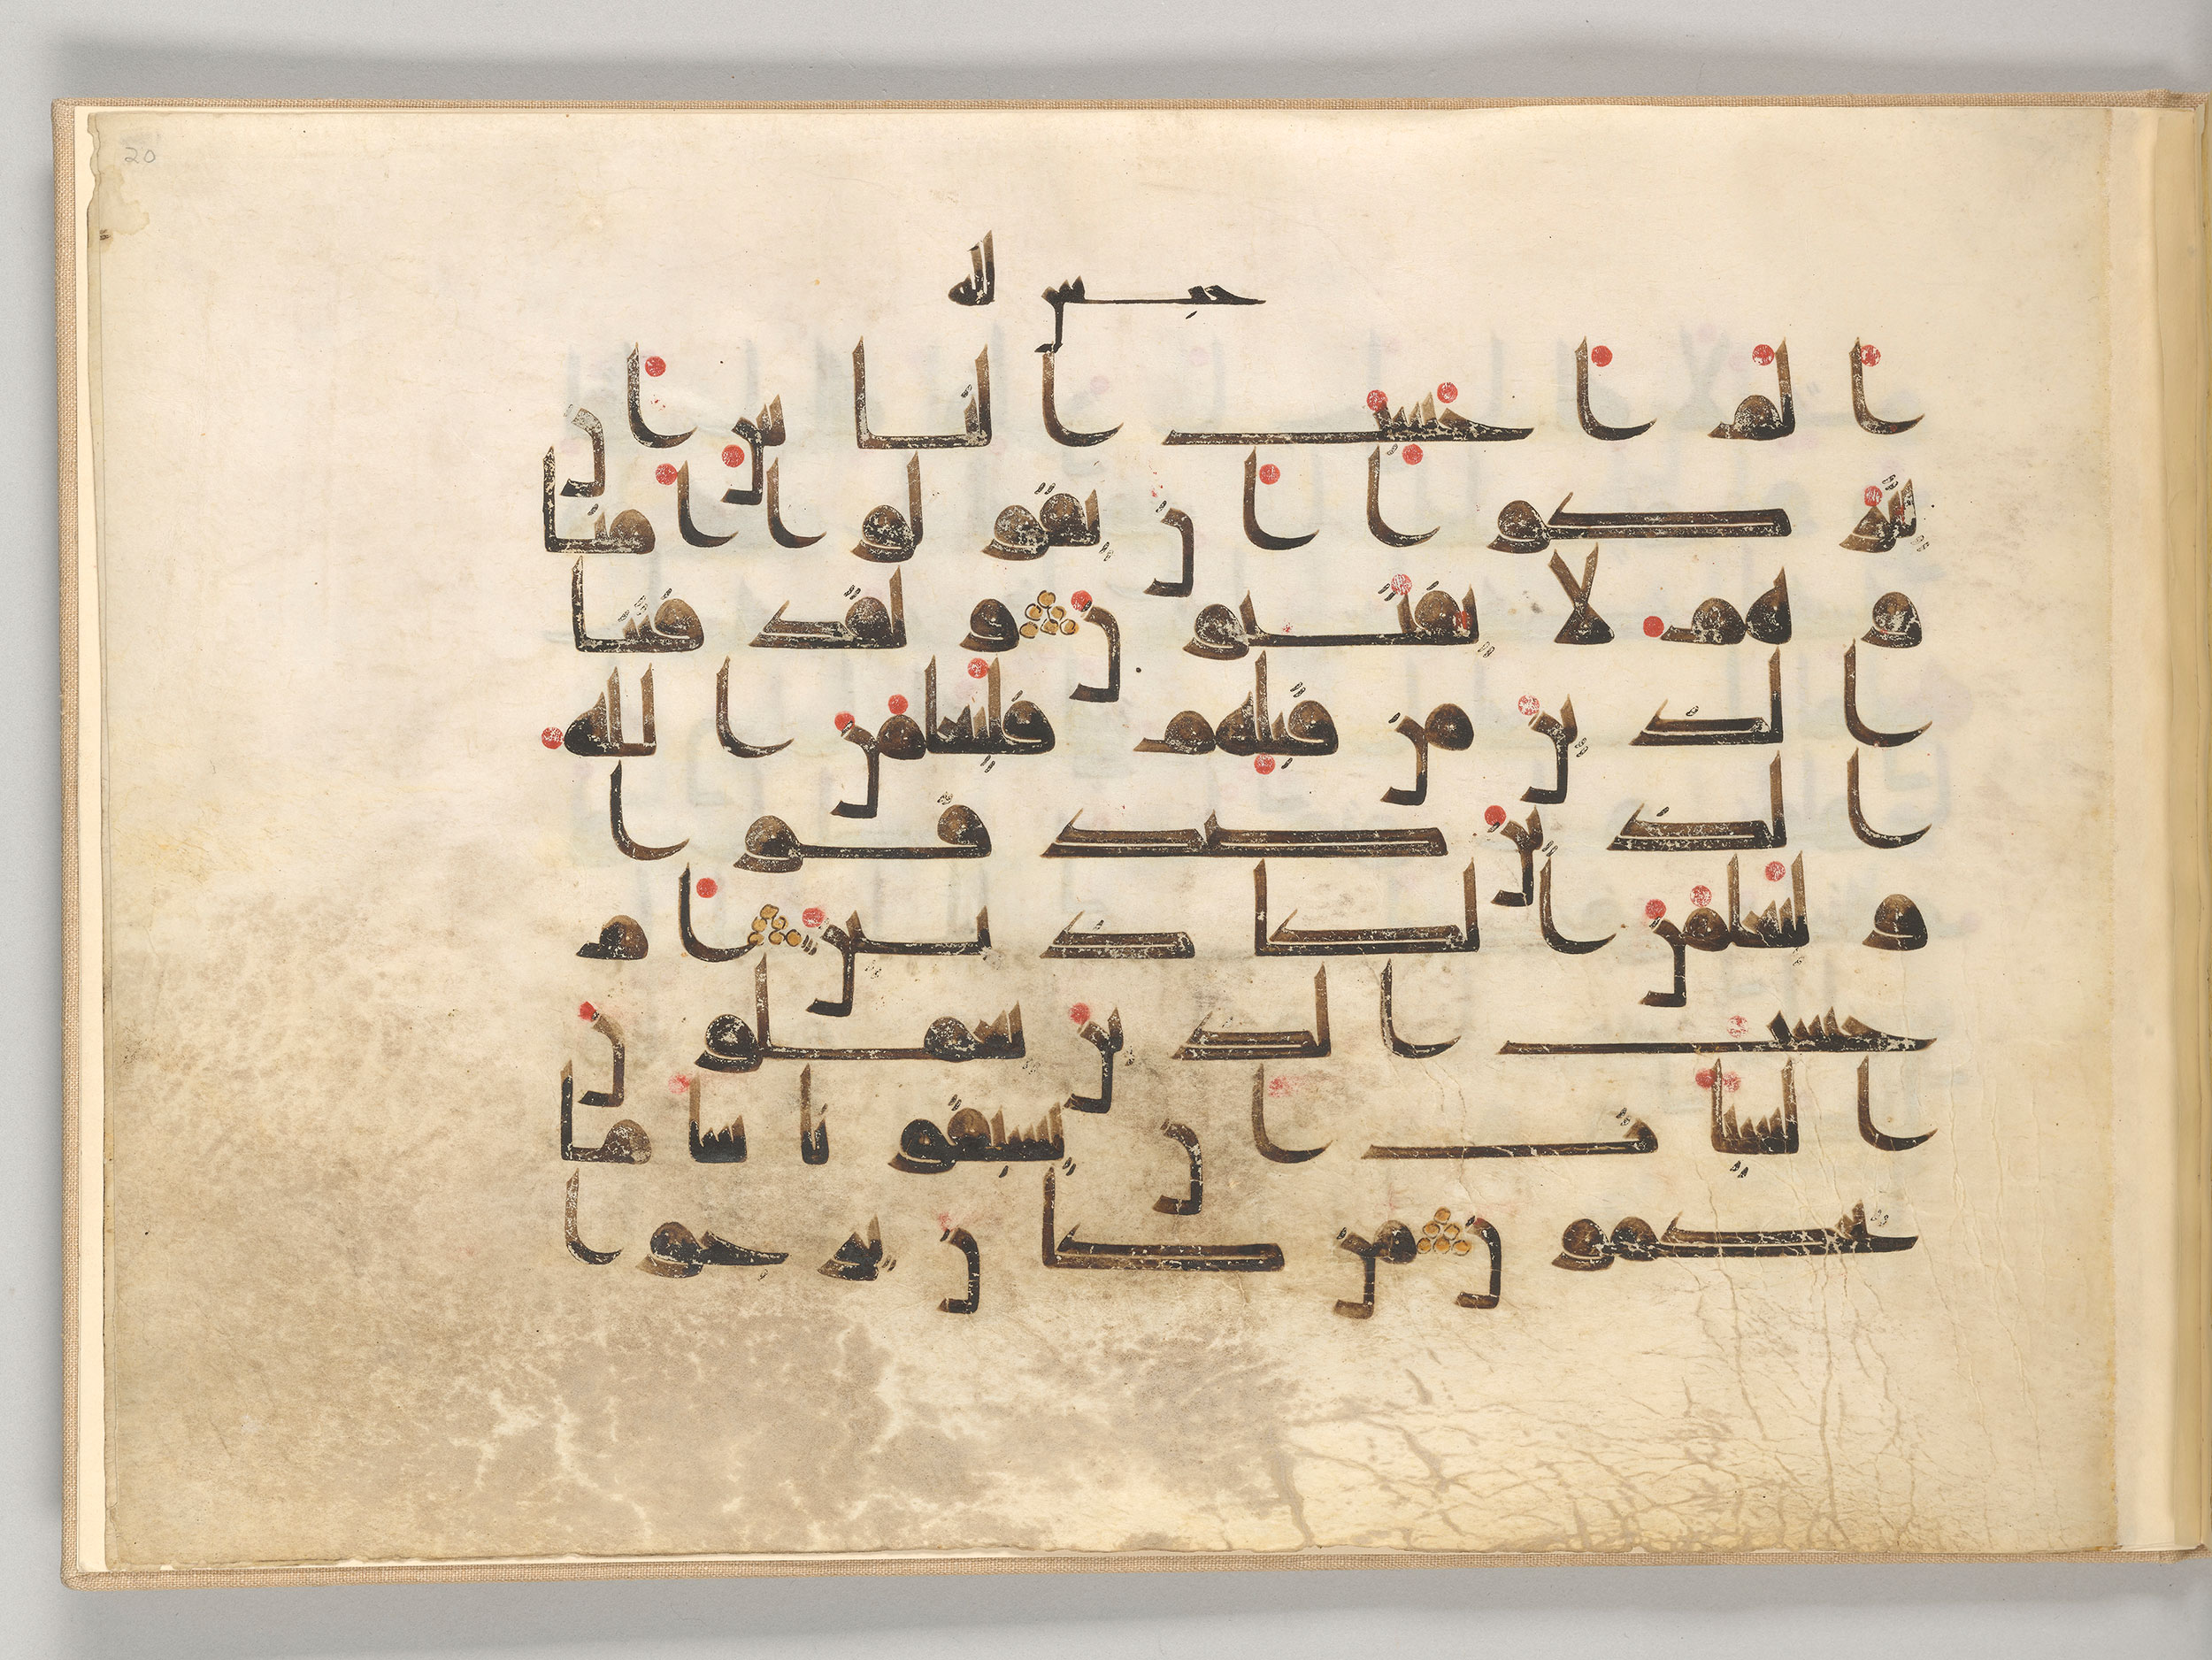 20
حبس لله
الم احسب الناس ان
يتركوا ان يقولوا امنا
وهم لا يفتنون ولقد فتنا
الذين من قبلهم فليعلمن الله
الذين صدقوا
وليعلمن الكذبين ام
حسب الذين يعملون
السيات ان يسبقونا سا ما
يحكمون من كان يرجوا